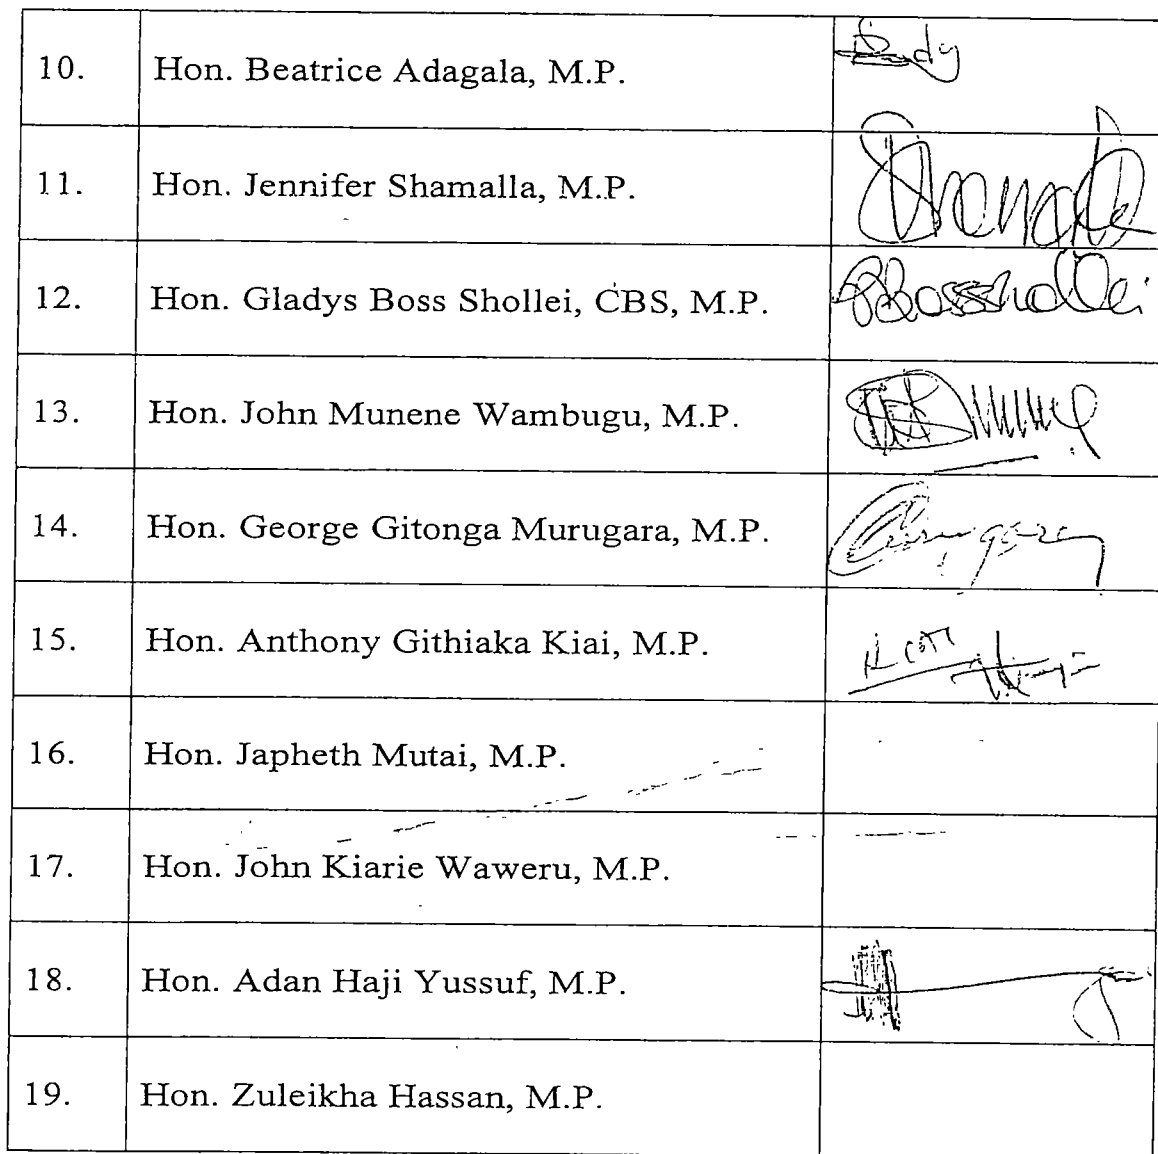 10. Hon. Beatrice Adagala, M.P.
11. Hon. Jennifer Shamalla, M.P.
12. Hon. Gladys Boss Shollei, CBS, M.P. GBossShollei
13. Hon. John Munene Wambugu, M.P.
14. Hon. George Gitonga Murugara, M.P.
15. Hon. Anthony Githiaka Kiai, M.P.
16. Hon. Japheth Mutai, M.P.
17. Hon. John Kiarie Waweru, M.P.
18. Hon. Adan Haji Yussuf, M.P.
19. Hon. Zuleikha Hassan, M.P.